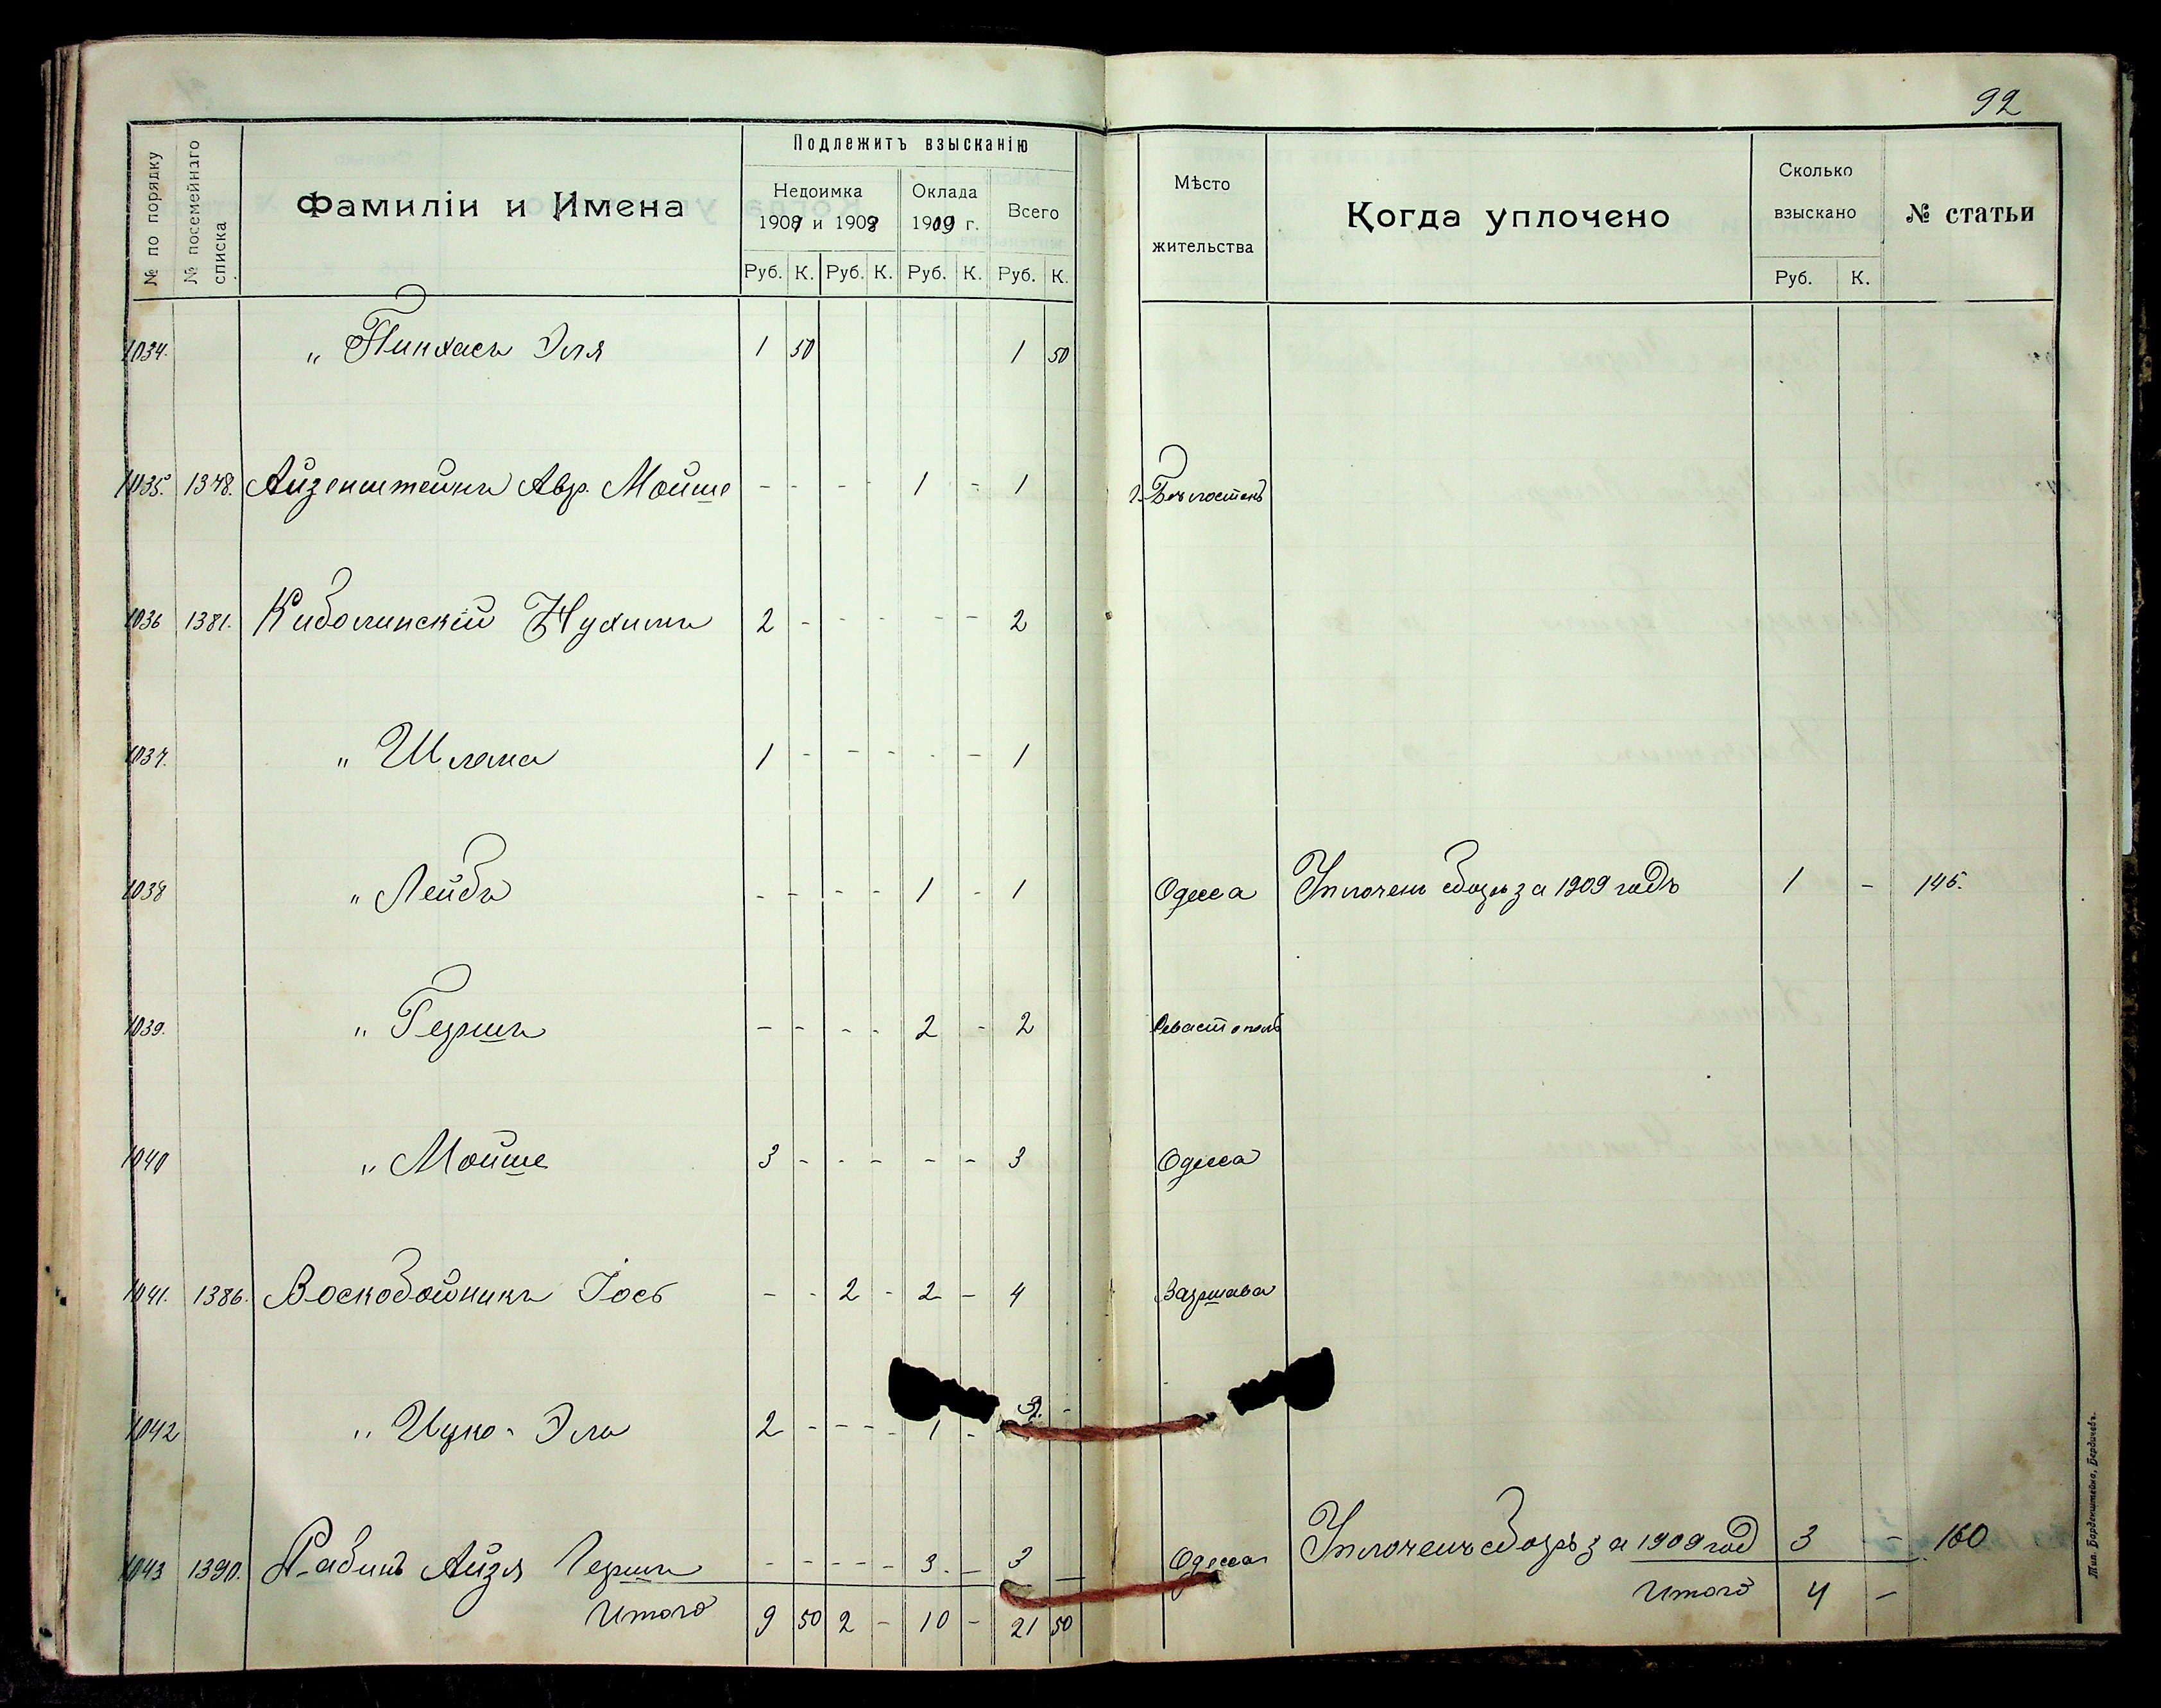 92
№ по порядку
№ посемейнаго списка
Фамиліи и Имена
Подлежитъ взысканію
Недоимка
1907 и 1908
Оклада
1909 г.
Всего
Руб. К. Руб. К. Руб. К. Руб. К.
Мѣсто
жительства
Когда уплочено
Сколько
взыскано
Руб. К.
№ статьи
1034. „ Пинхасъ Эля 1 50 1 50
1035. 1378. Айзенштейнъ Авр. Мойше - - - - 1 - 1 г. Бѣлостокъ
1036 1381. Нухимъ 2 - - - - - 2
1037. „ Шлема 1 - - - - - 1
1038 „ Лейбъ - - - - 1 - 1 Одесса Уплоченъ сборъ за 1909 годъ 1 - 145.
1039. „ Гершъ - - - - 2 - 2 Севастополь
1040 „ Мойше 3 - - - - - 3 Одесса
1041. 1386. Воскобойникъ Іось - - 2 - 2 - 4 Варшава
1042 „ Ицко-Эли 2 - - - 1 - 3. -
1043 1390. Рабинъ Айзя Гершъ - - - - 3. - 3 - Одесса Уплоченъ сборъ за 1909 год 3 - 160
Итого 9 50 2 - 10 - 21 50
Итого 4 -
Тип. Барденштейна, Бердичевъ.